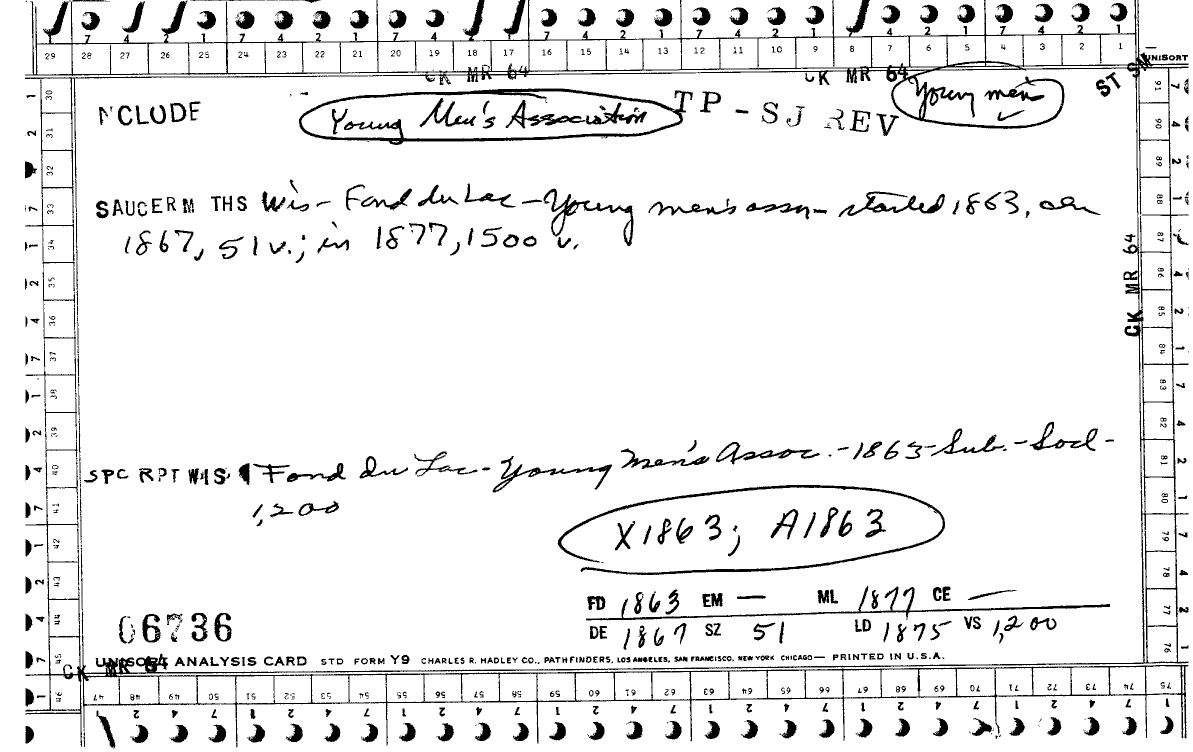 7 4 2 1 7 4 2 1 7 4 2 1 7 4 2 1 7 4 2 1 7 4 2 1
29 28 27 26 25 24 23 22 21 20 19 18 17 16 15 14 13 12 11 10 9 8 7 6 5 4 3 2 1 UNISORT
CK MR 64 CK MR 64 ST SM
NCLUDE Young Men's Association TP - SJ REV Young men's
SAUCERM THS Wis - Fond du Lac - Young men's assn - started 1863,
1867, 51 v.; in 1877, 1500 v.
CK MR 64
SPC RPT WIS Fond du Lac - Young Men's Assoc. - 1863 - Sub. - Socl -
1,200
X1863; A1863
FD 1863 EM — ML 1877 CE —
DE 1867 SZ 51 LD 1875 VS 1,200
06736
CK MR 64
UNISORT ANALYSIS CARD STD FORM Y9 CHARLES R. HADLEY CO., PATHFINDERS, LOS ANGELES, SAN FRANCISCO, NEW YORK CHICAGO — PRINTED IN U.S.A.
30 31 32 33 34 35 36 37 38 39 40 41 42 43 44 45 46
47 48 49 50 51 52 53 54 55 56 57 58 59 60 61 62 63 64 65 66 67 68 69 70 71 72 73 74 75
76 77 78 79 80 81 82 83 84 85 86 87 88 89 90 91